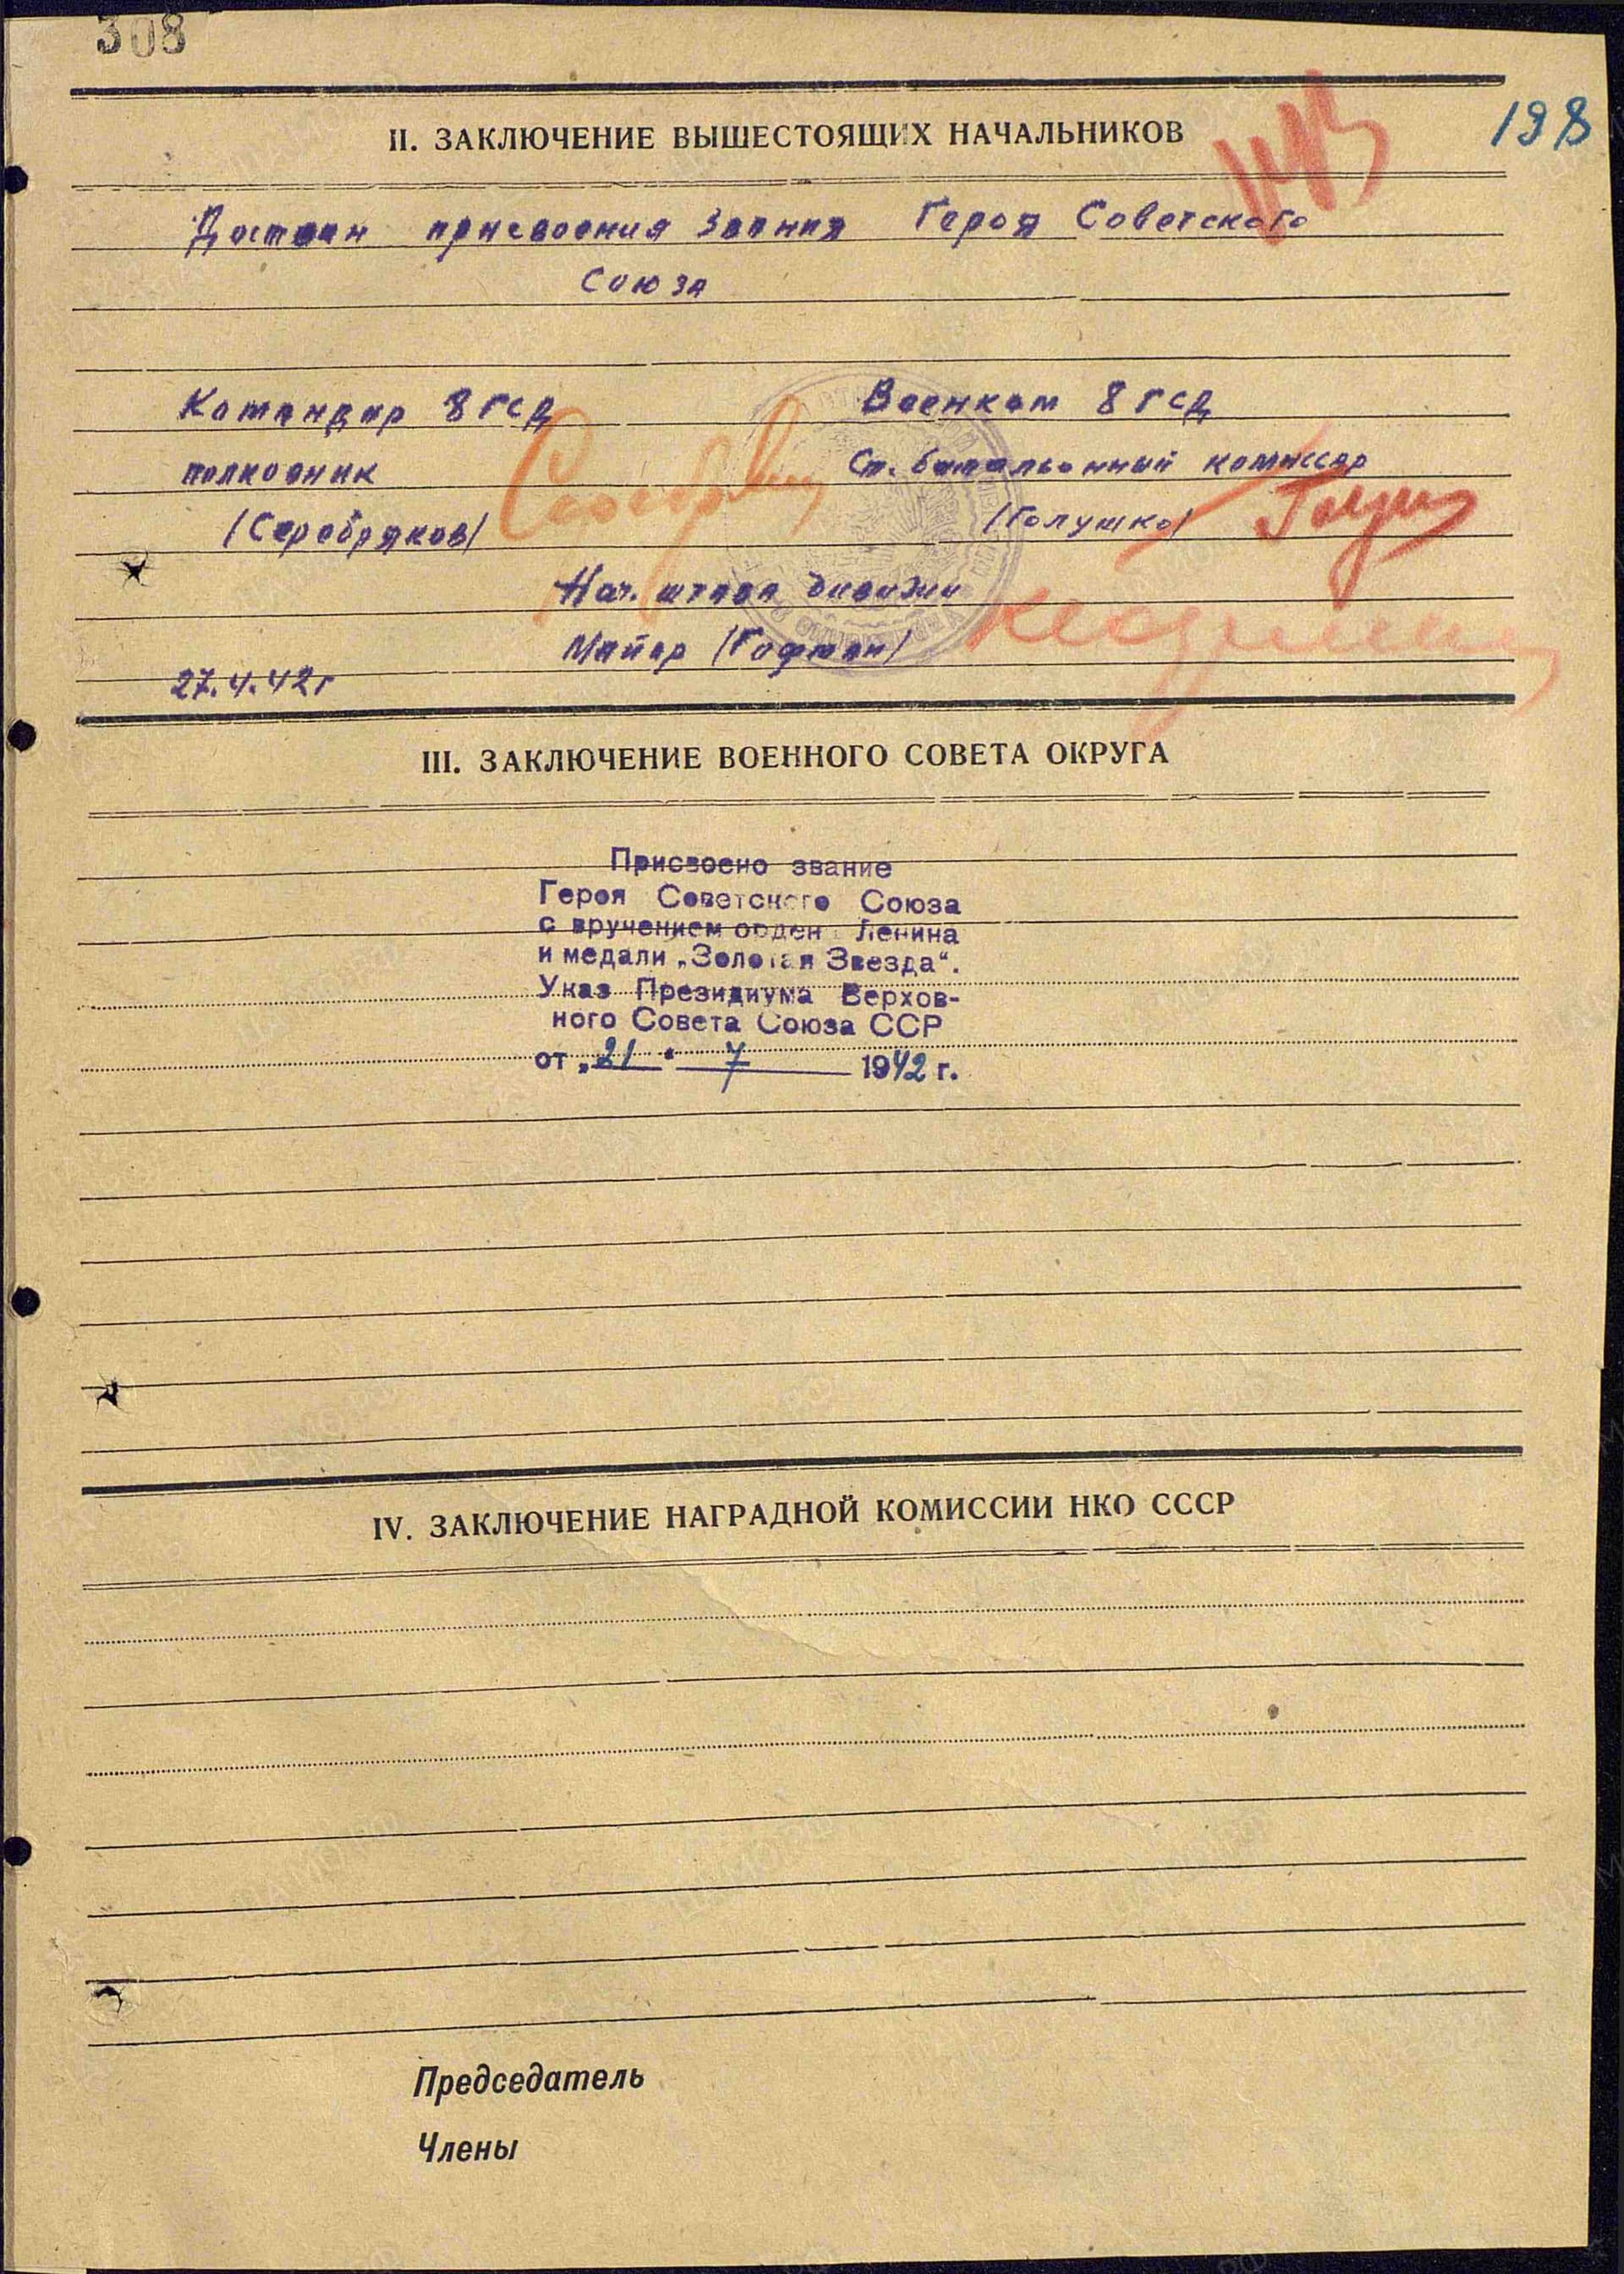 308
198
II. ЗАКЛЮЧЕНИЕ ВЫШЕСТОЯЩИХ НАЧАЛЬНИКОВ
Достоин присвоения звания Героя Советского
Союза
Командир 8 ГСД Военком 8 ГСД
полковник Ст. батальонный комиссар
/Серебряков/ /Голушко/
Нач. штаба дивизии
Майор /Гофман/
27.4.42г
III. ЗАКЛЮЧЕНИЕ ВОЕННОГО СОВЕТА ОКРУГА
Присвоено звание
Героя Советского Союза
с вручением орден Ленина
и медали „Золотая Звезда“.
Указ Президиума Верхов-
ного Совета Союза ССР
от „21“ 7 1942 г.
IV. ЗАКЛЮЧЕНИЕ НАГРАДНОЙ КОМИССИИ НКО СССР
Председатель
Члены